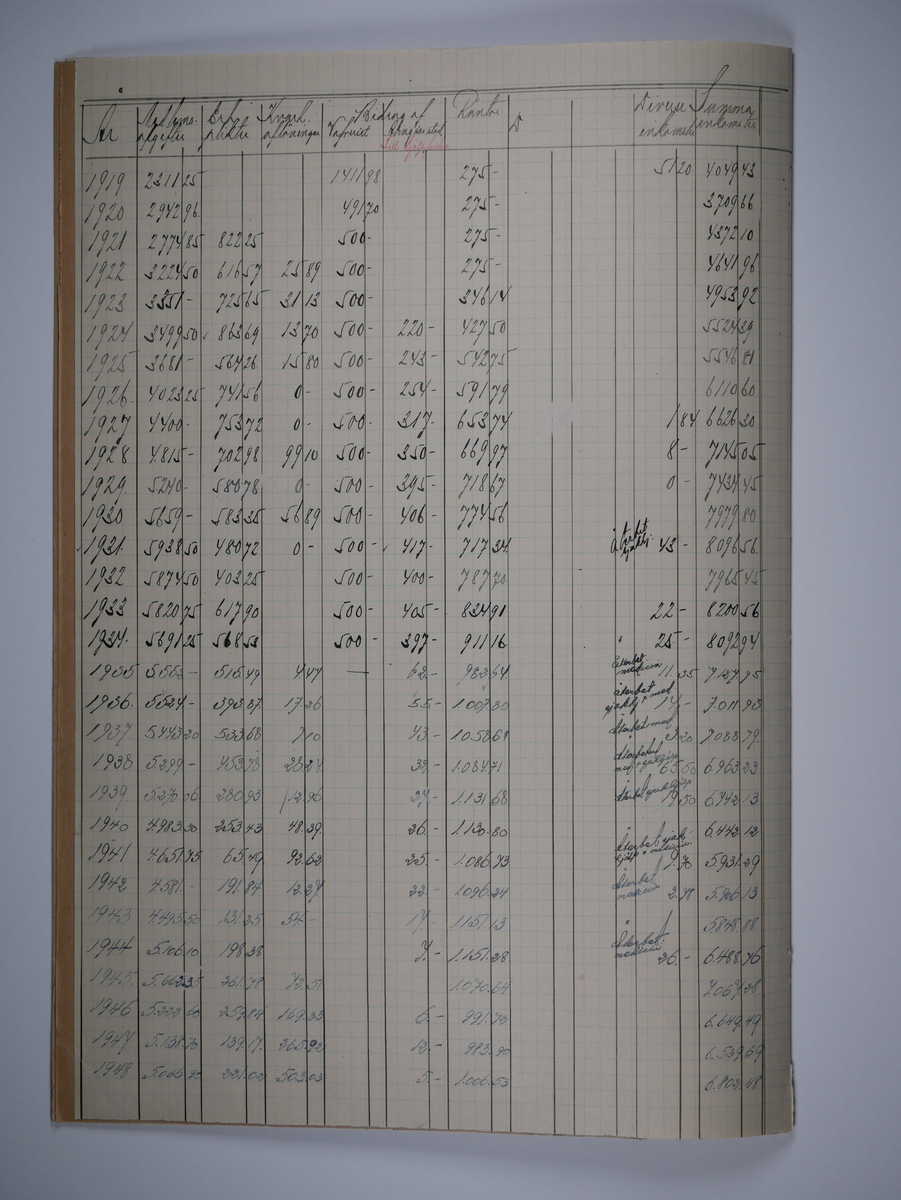 År Medlems- Erh. Kvarl. Bidrag af Räntor D Diverse Summa
afgifter aflöningar Vapveriet inkomster inkomster
1919 2311 25 1411 98 275- 51 20 4049 43
1920 2942 96 491 70 275- 3709 66
1921 2774 85 822 25 500- 275- 4372 10
1922 3224 50 616 57 25 89 500- 275- 4641 96
1923 3351- 725 65 31 13 500- 346 14 4953 92
1924 3499 50 863 69 13 70 500- 220- 427 50 5524 39
1925 3681- 564 26 15 80 500- 243- 542 75 5546 81
1926 4023 25 741 56 0- 500- 254- 591 79 6110 60
1927 4400- 753 72 0- 500- 317- 653 74 1 84 6626 30
1928 4815- 702 98 99 10 500- 350- 669 97 8- 7145 05
1929 5240- 580 78 0- 500- 395- 718 67 0- 7434 45
1930 5659- 583 35 56 89 500- 406- 774 56 7979 80
1931 5938 50 480 72 0- 500- 417- 717 34 43- 8096 56
1932 5874 50 403 25 500- 400- 787 70 7965 45
1933 5820 75 617 90 500- 405- 834 91 22- 8200 56
1934 5691 25 568 53 500- 397- 911 16 25- 8092 94
1935 5552- 515.49 4.47 — 62- 982.64 Återbet. medicin 11.35 7.127.95
1936 5524- 393.87 17.26 55- 1.007.80 återbet 14- 7.011.93
1937 5.443.20 533.68 7.10 43- 1.058.61 Återbet med 2.20 7.088.79
1938 5.299- 453.78 28.24 32- 1.084.71 65.50 6.963.23
1939 5.270.06 280.93 12.96 27- 1.131.68 19.50 6.742.13
1940 4.983.30 253.43 48.29 26- 1.130.80 6.442.12
1941 4.651.75 65.49 92.62 25- 1.086.73 9.70 5.931.29
1942 4.581- 191.84 12.27 22- 1.096.24 Återbet medicin 2.78 5.906.13
1943 4.495.50 131.25 54- 17- 1.151.13 5.848.88
1944 5.106.10 198.38 7- 1.151.28 Återbet. medicin 26- 6.488.76
1945 5.662.35 261.78 72.51 1.070.64 7.067.28
1946 5.222.60 257.84 169.33 6- 991.72 6.649.49
1947 5.138.70 139.17 265.92 12- 983.90 6.539.69
1948 5.066.90 221.02 503.03 5- 1.006.53 6.802.48